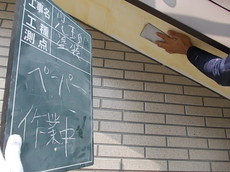 工事名
工種 塗装
測点
ペーパー
作業中